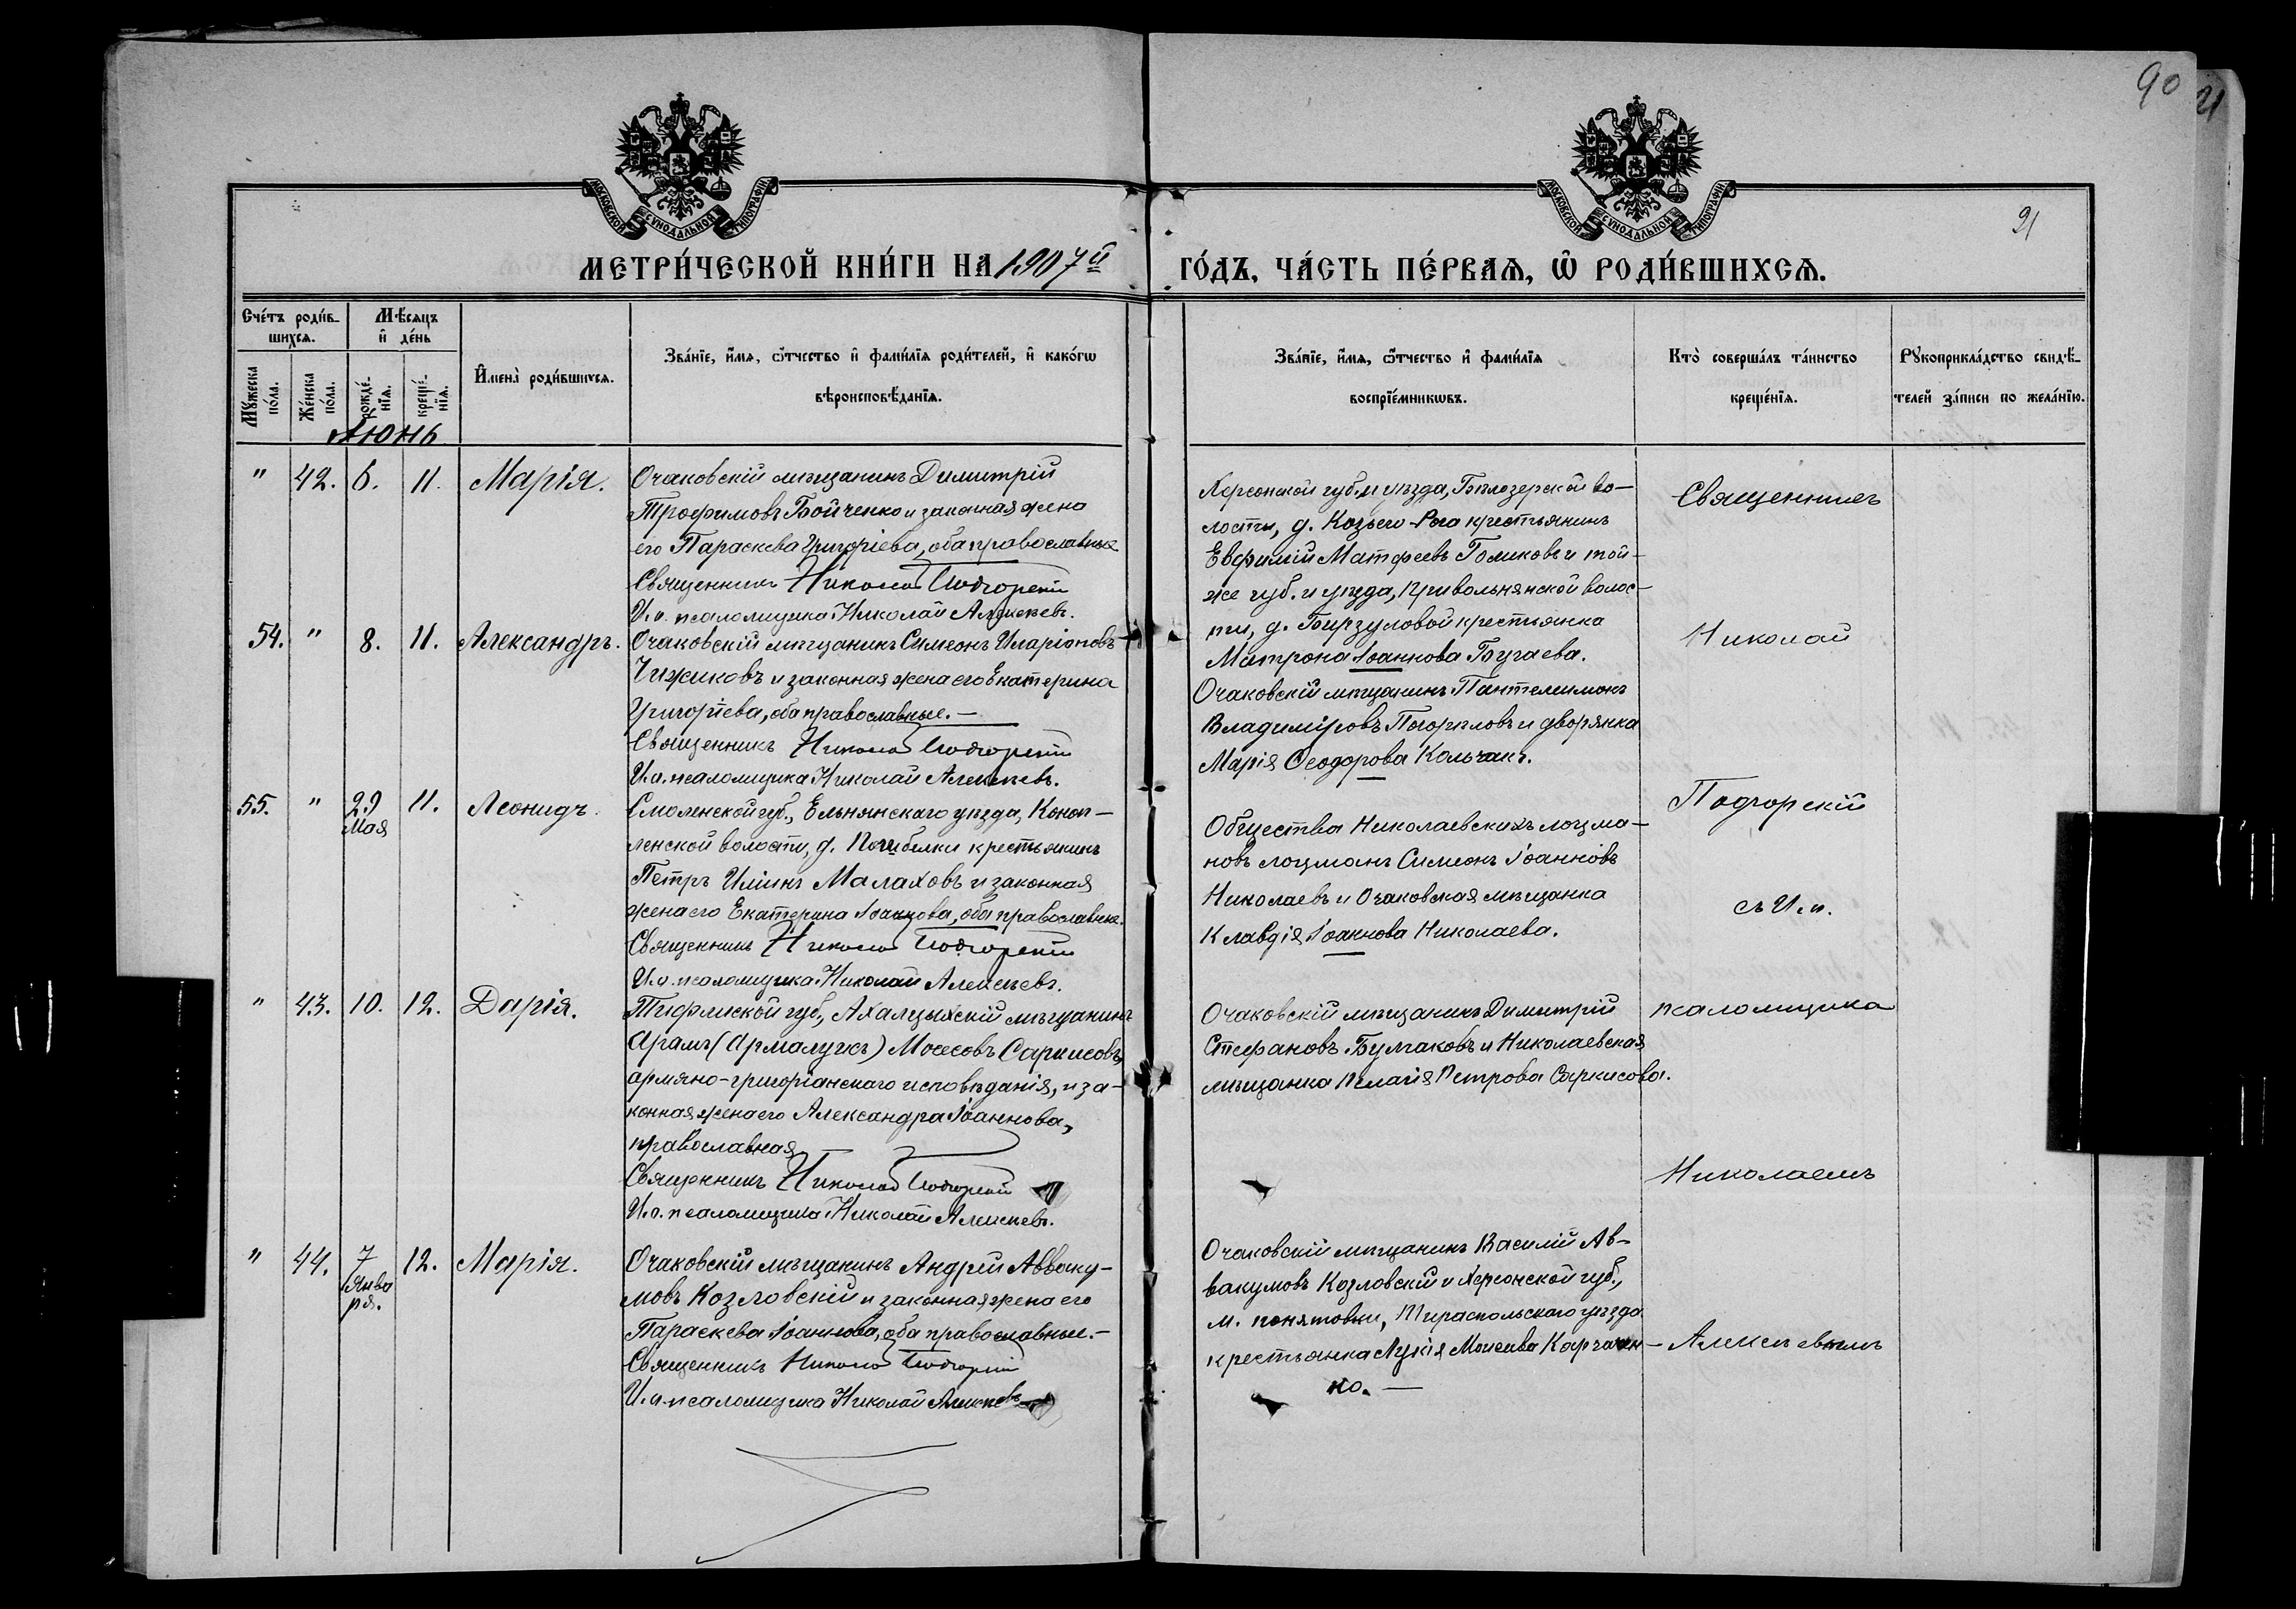 90
21
МОСКОВСКОЙ СУНОДАЛЬНОЙ ТИПОГРАФІИ
МОСКОВСКОЙ СУНОДАЛЬНОЙ ТИПОГРАФІИ
91
МЕТРИ́ЧЕСКОЙ КНИ́ГИ НА 1907й ГО́ДЪ, ЧА́СТЬ ПЕ́РВАЯ, Ѡ҆ РОДИ́ВШИХСЯ.
Сче́тъ роди́в-
шихся.
Мѣ́сяцъ
и҆ де́нь
Му́жеска
по́ла.
Же́нска
по́ла.
рожде́-
нїя.
креще́-
нїя.
И҆мена̀ роди́вшихся.
Зва́нїе, и҆́мя, ѻ҆́тчество и҆ фами́лїя роди́телей, и҆ како́гѡ
вѣроисповѣ́данїя.
Зва́нїе, и҆́мя, ѻ҆́тчество и҆ фами́лїя
воспрїе́мникѡвъ.
Кто̀ соверша́лъ та́инство
креще́нїя.
Рꙋкоприкла́дство свидѣ́-
телей за́писи по жела́нїю.
Іюнь
" 42. 6. 11. Марія.
Очаковскій мѣщанинъ Димитрій
Трофимовъ Бойченко и законная жена
его Параскева Григоріева, оба православные
Священникъ Николай Подгорскій
И.о. псаломщика Николай Алексѣевъ.
Херсонской губ. и уѣзда, Бѣлозерской во-
лости, д. Козьего-Рога крестьянинъ
Евфимій Матфеевъ Голиковъ и той-
же губ. и уѣзда, Привольнянской волос-
ти, д. Бирзуловой крестьянка
Матрона Іоаннова Бугаева.
54. " 8. 11. Александръ.
Очаковскій мѣщанинъ Симеонъ Иларіоновъ
Чижиковъ и законная жена его Екатерина
Григоріева, оба православные.-
Священникъ Николай Подгорскій
И.о. псаломщика Николай Алексѣевъ.
Очаковскій мѣщанинъ Пантелеимонъ
Владиміровъ Погорѣловъ и дворянка
Марія Ѳеодорова Кольчакъ.
55. " 29 Мая 11. Леонидъ.
Смоленской губ., Ельнянскаго уѣзда, Коноп-
ленской волости, д. Погибелки крестьянинъ
Петръ Иліинъ Малаховъ и законная
жена его Екатерина Іоаннова, оба православные.
Священникъ Николай Подгорскій
И.о. псаломщика Николай Алексѣевъ.
Общества Николаевскихъ лоцма-
новъ лоцманъ Симеонъ Іоанновъ
Николаевъ и Очаковская мѣщанка
Клавдія Іоаннова Николаева.
" 43. 10. 12. Дарія.
Тифлиской губ., Ахалцыхскій мѣщанинъ
Арамъ (Армалуисъ) Мосесовъ Саркисовъ,
армяно-григоріанскаго исповѣданія, и за-
конная жена его Александра Іоаннова,
православная
Священникъ Николай Подгорскій
И.о. псаломщика Николай Алексѣевъ.
Очаковскій мѣщанинъ Димитрій
Стефановъ Булгаковъ и Николаевская
мѣщанка Пелагія Петрова Саркисова.
" 44. 7 Января. 12. Марія.
Очаковскій мѣщанинъ Андрей Авваку-
мовъ Козловскій и законная жена его
Параскева Іоаннова, оба православные.-
Священникъ Николай Подгорскій
И.о. псаломщика Николай Алексѣевъ
Очаковскій мѣщанинъ Василій Ав-
вакумовъ Козловскій и Херсонской губ.,
м. Понятовки, Тираспольскаго уѣзда
крестьянка Лукія Моисеева Корчаген-
ко. -
Священникъ
Николай
Подгорскій
съ И. о.
псаломщика
Николаемъ
Алексѣевымъ